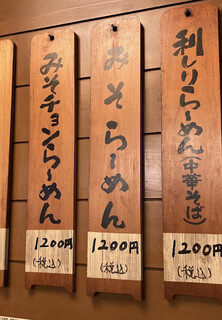 利しりらーめん(中華そば)
1200円
(税込)
みそらーめん
1200円
(税込)
みそチョンらーめん
1200円
(税込)